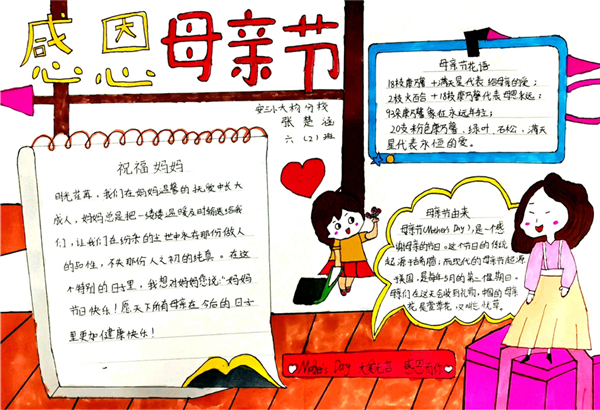 感恩母亲节
张楚涵
六(2)班
母亲节花语
18枝康乃馨+满天星代表给母亲的爱；
2枝大百合+18枝康乃馨代表母恩永远；
9朵康乃馨象征永远年轻；
20支粉色康乃馨、绿叶、石松、满天
星代表永恒的爱。
祝福妈妈
时光荏苒，我们在妈妈温馨的执爱中长大
成人，妈妈总是把一缕缕温暖及时输送给我
们，让我们在纷杂的尘世中永存那份做人
的品性，不失那份人之初的纯真。在这
个特别的日子里，我想对妈妈您说："妈妈
节日快乐！愿天下所有母亲在今后的日子
里更加健康快乐！
母亲节由来
母亲节(Mother's Day)，是一个感
谢母亲的节日。这个节日的传统
起源于希腊，而现代的母亲节起源
于美国，是每年5月的第二个星期日。
母亲们在这天会收到礼物，中国的母亲
花是萱草花，又叫忘忧草。
Mother's Day 大爱无言 感恩有你